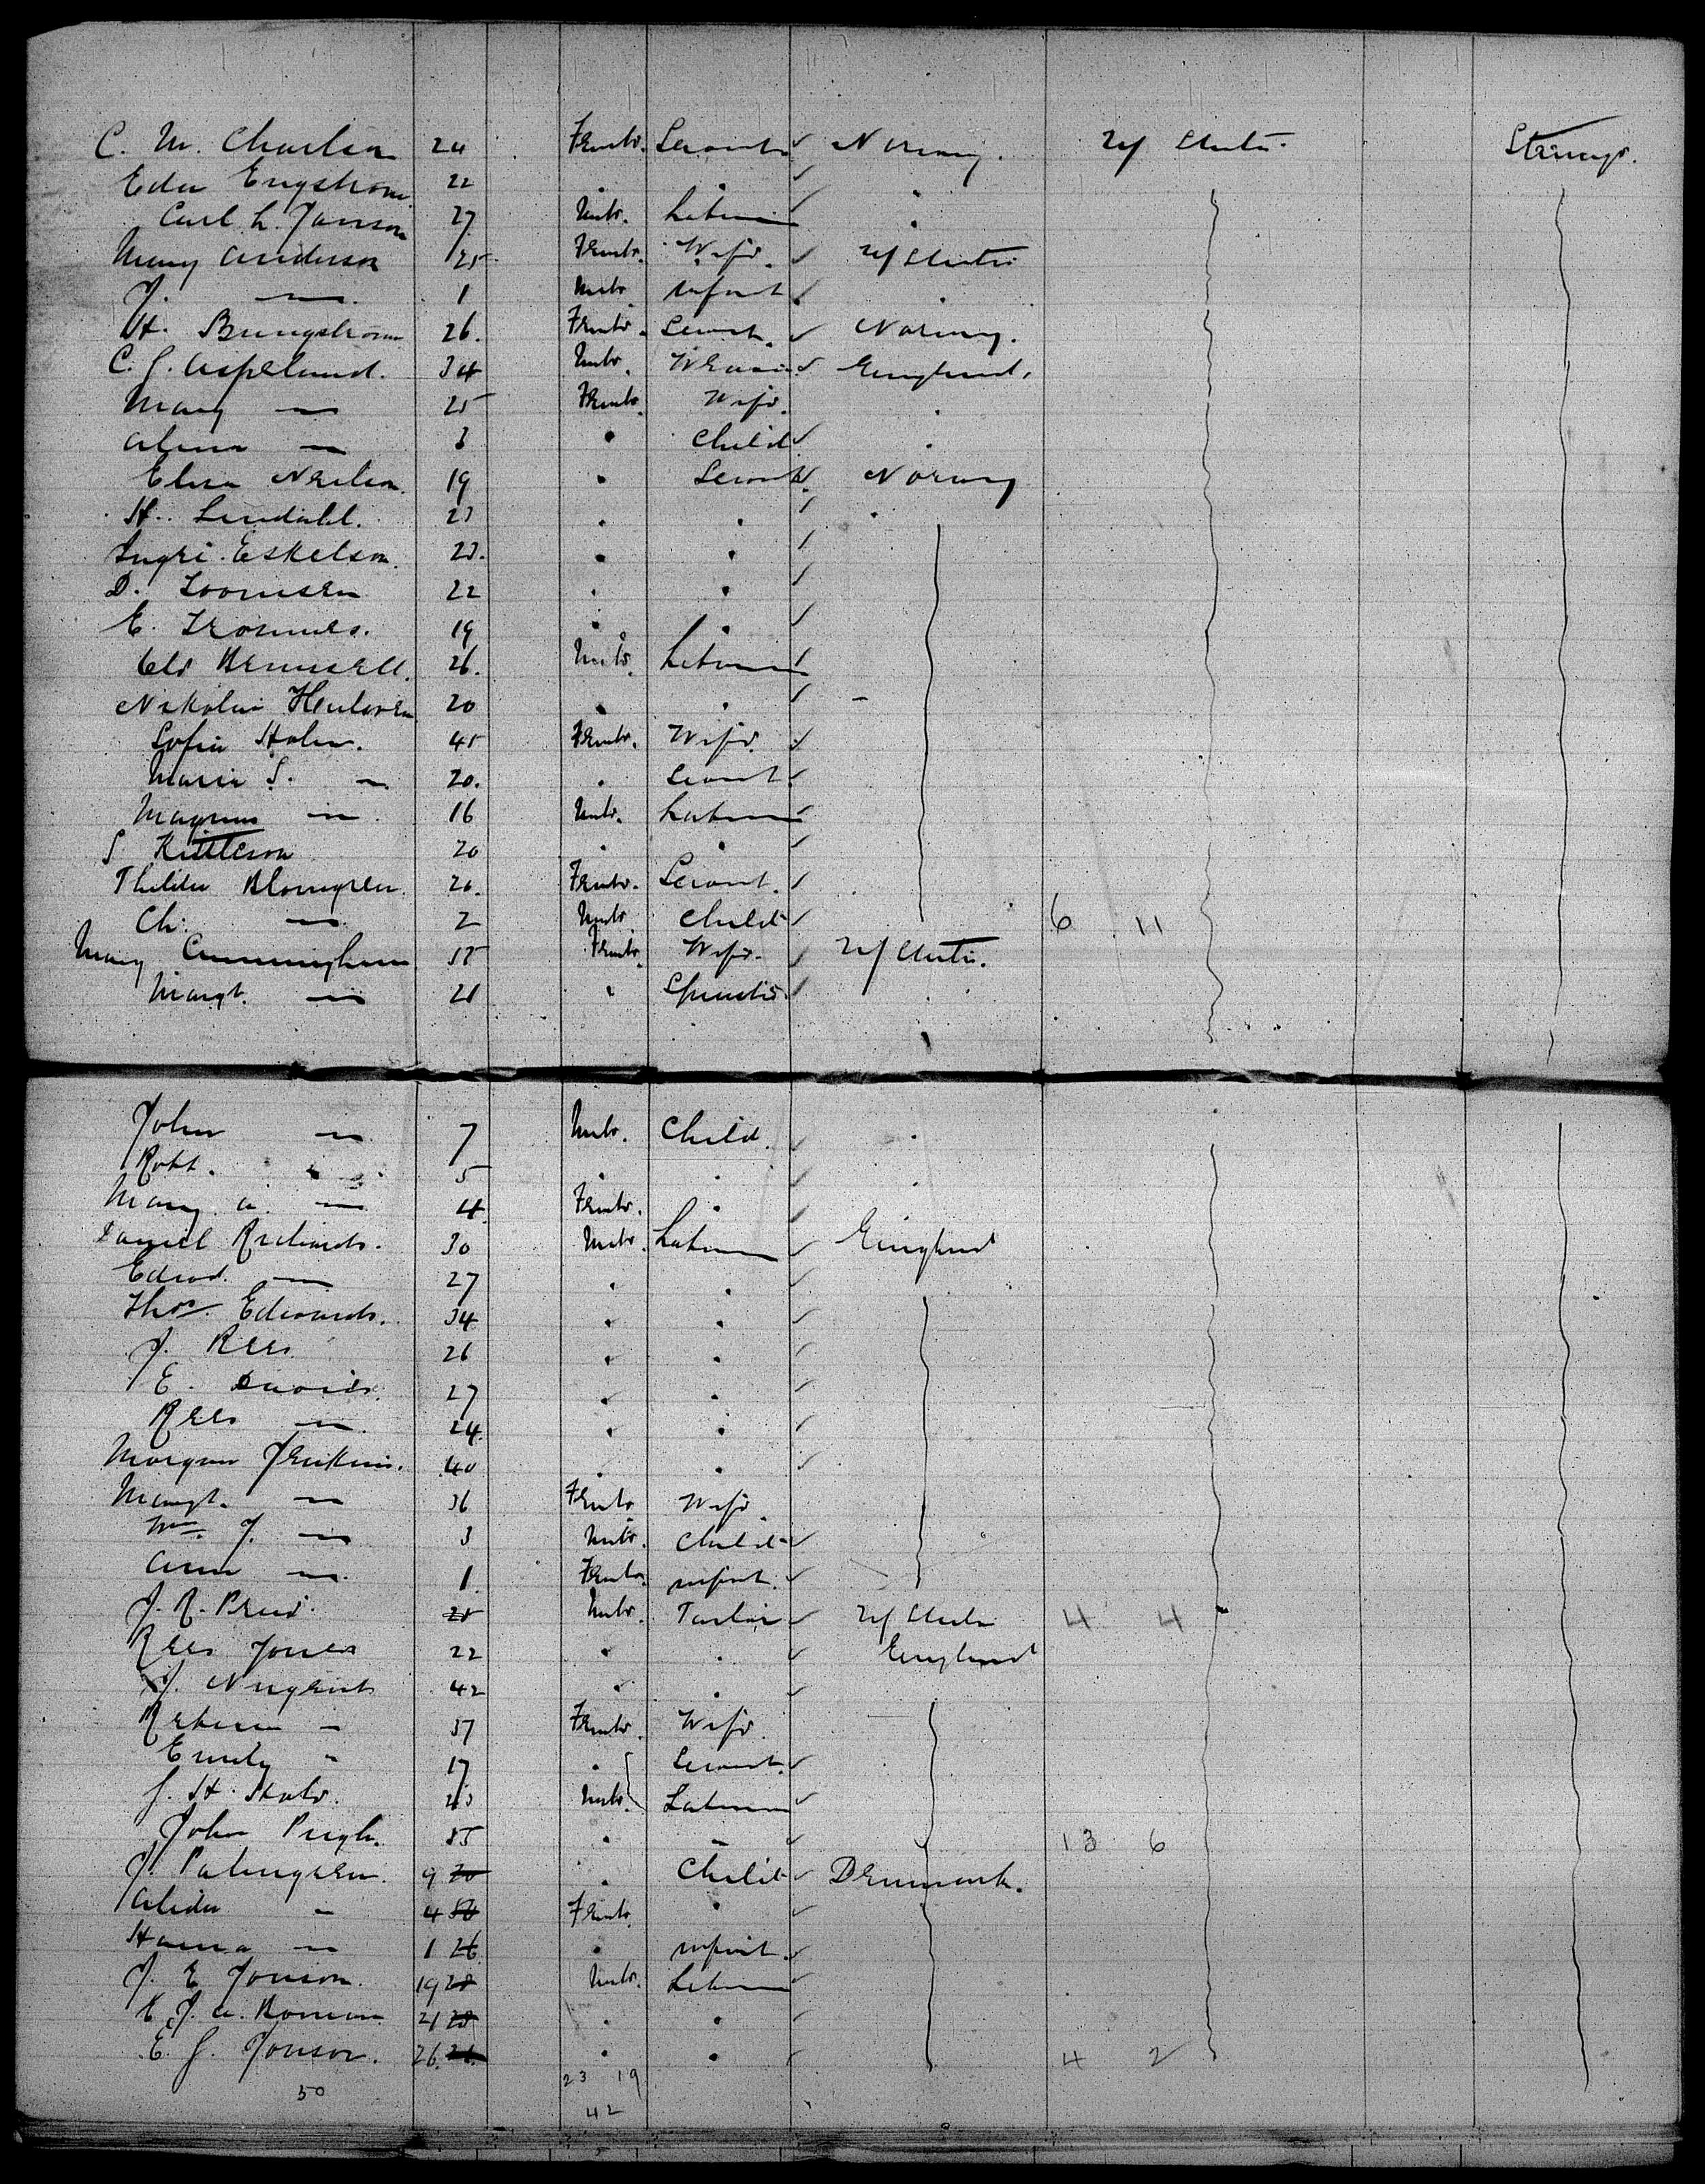 C. M. Charlson 24 Female Servant Norway. U/States Steerage.
Eda Engstrom 22 " "
Carl L. Janson 27 Male. Laborer "
Mary Anderson 25 Female. Wife. U/States
J. — 1 Male Infant "
H. Bungstrom 26. Female. Servant Norway.
C. J. Aspelund. 34 Male. England.
Mary — 25 Female. Wife. "
Alma — 3 " Child "
Elisa Neilson. 19 " Servant Norway
H. Lindahl. 23 " " "
Ingri Eskelson. 23. " "
D. 22 " "
E. 19 " "
26. Male. Laborer
Nikolai 20 " "
Sofia Holm. 45 Female. Wife.
Maria S. — 20. " Servant
Magnus — 16 Male. Laborer
S Kittleson 20 " "
Thilda Blomgren. 26. Female. Servant.
Ch. — 2 Male Child 6 11
Mary Cunningham Female. Wife. U/States.
Margt. — 21 " Spinster "
John — 7 Male. Child. "
Robt. " 5 " " "
Mary A. — 4 Female. "
Daniel Richards. 30 Male. Laborer England
Edwd. — 27 " "
Thos. Edwards. 34 " "
J. Rees 26 " "
E. Davies. 27 " "
Rees — 24. " "
Morgan Jenkins. 40 " "
Margt. — 36 Female Wife
Wm. J. — 3 Male. Child
Ann — 1. Female. Infant.
J. R. Male. U/States 4 4
Rees Jones 22 " " England
J. Nugent 42 " "
Rebecca — 37 Female. Wife.
Emily " 17 " Servant.
J. H. Male. Laborer
John Pugh. " " 13 6
J. Palmgren. 9 20 " Child Denmark.
Alida — 4 Female. "
Hanna — 1 26 " Infant.
J. E. Jonson. 19 28 Male. Laborer
E. J. A. Boman 21 28 " "
E. J. Jonson. 26. " " 4 2
50 23 19
42